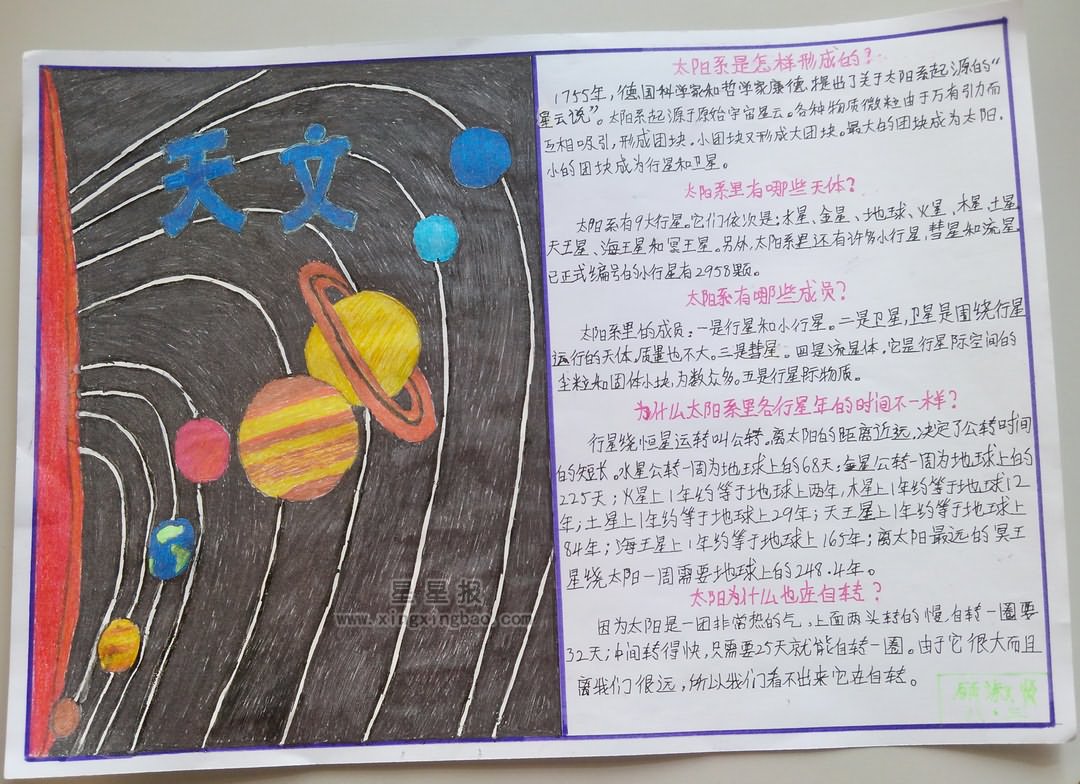 天文
太阳系是怎样形成的？
1755年，德国科学家和哲学家康德，提出了关于太阳系起源的“
星云说”。太阳系起源于原始宇宙星云。各种物质微粒由于万有引力而
互相吸引，形成团块。小团块又形成大团块。最大的团块成为太阳，
小的团块成为行星和卫星。
太阳系里有哪些天体？
太阳系有9大行星。它们依次是：水星、金星、地球、火星、木星、土星、
天王星、海王星和冥王星。另外，太阳系里还有许多小行星，彗星和流星，
已正式编号的小行星有2958颗。
太阳系有哪些成员？
太阳系里的成员：一是行星和小行星。二是卫星，卫星是围绕行星
运行的天体，质量也不大。三是彗星。四是流星体，它是行星际空间的
尘粒和固体小块，为数众多。五是行星际物质。
为什么太阳系里各行星年的时间不一样？
行星绕恒星运转叫公转。离太阳的距离近远，决定了公转时间
的短长。水星公转一周为地球上的68天；金星公转一周为地球上的
225天；火星上1年约等于地球上两年，木星上1年约等于地球12
年；土星上1年约等于地球上29年；天王星上1年约等于地球上
84年；海王星上1年约等于地球上165年；离太阳最远的冥王
星绕太阳一周需要地球上的248.4年。
太阳为什么也在自转？
因为太阳是一团非常热的气，上面两头转的慢，自转一圈要
32天；中间转得快，只需要25天就能自转一圈。由于它很大而且
离我们很远，所以我们看不出来它在自转。
星星报
www.xingxingbao.com